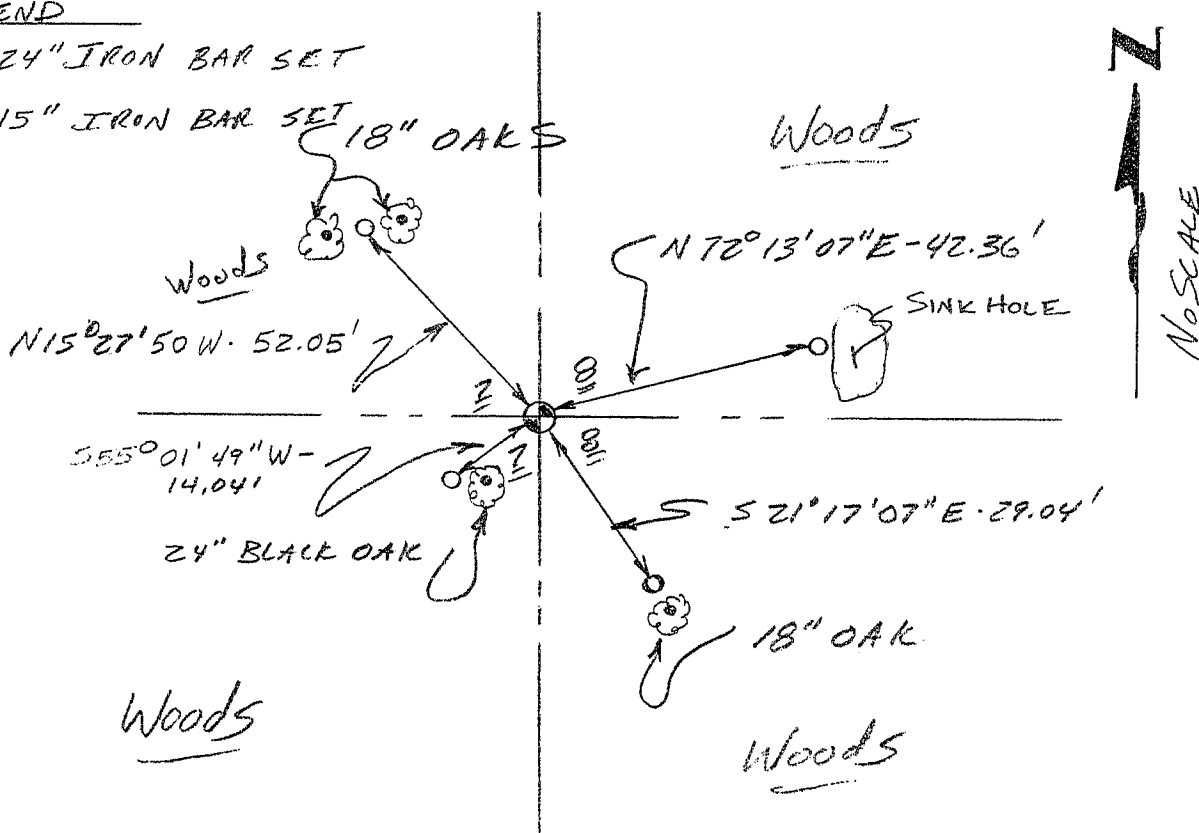 END
24" IRON BAR SET
15" IRON BAR SET
18" OAKS
Woods
N
No SCALE
Woods
N 72° 13' 07" E - 42.36'
SINK HOLE
N15°27'50 W. 52.05'
S55° 01' 49" W -
14.04'
S 21° 17' 07" E - 29.04'
24" BLACK OAK
18" OAK
Woods
Woods